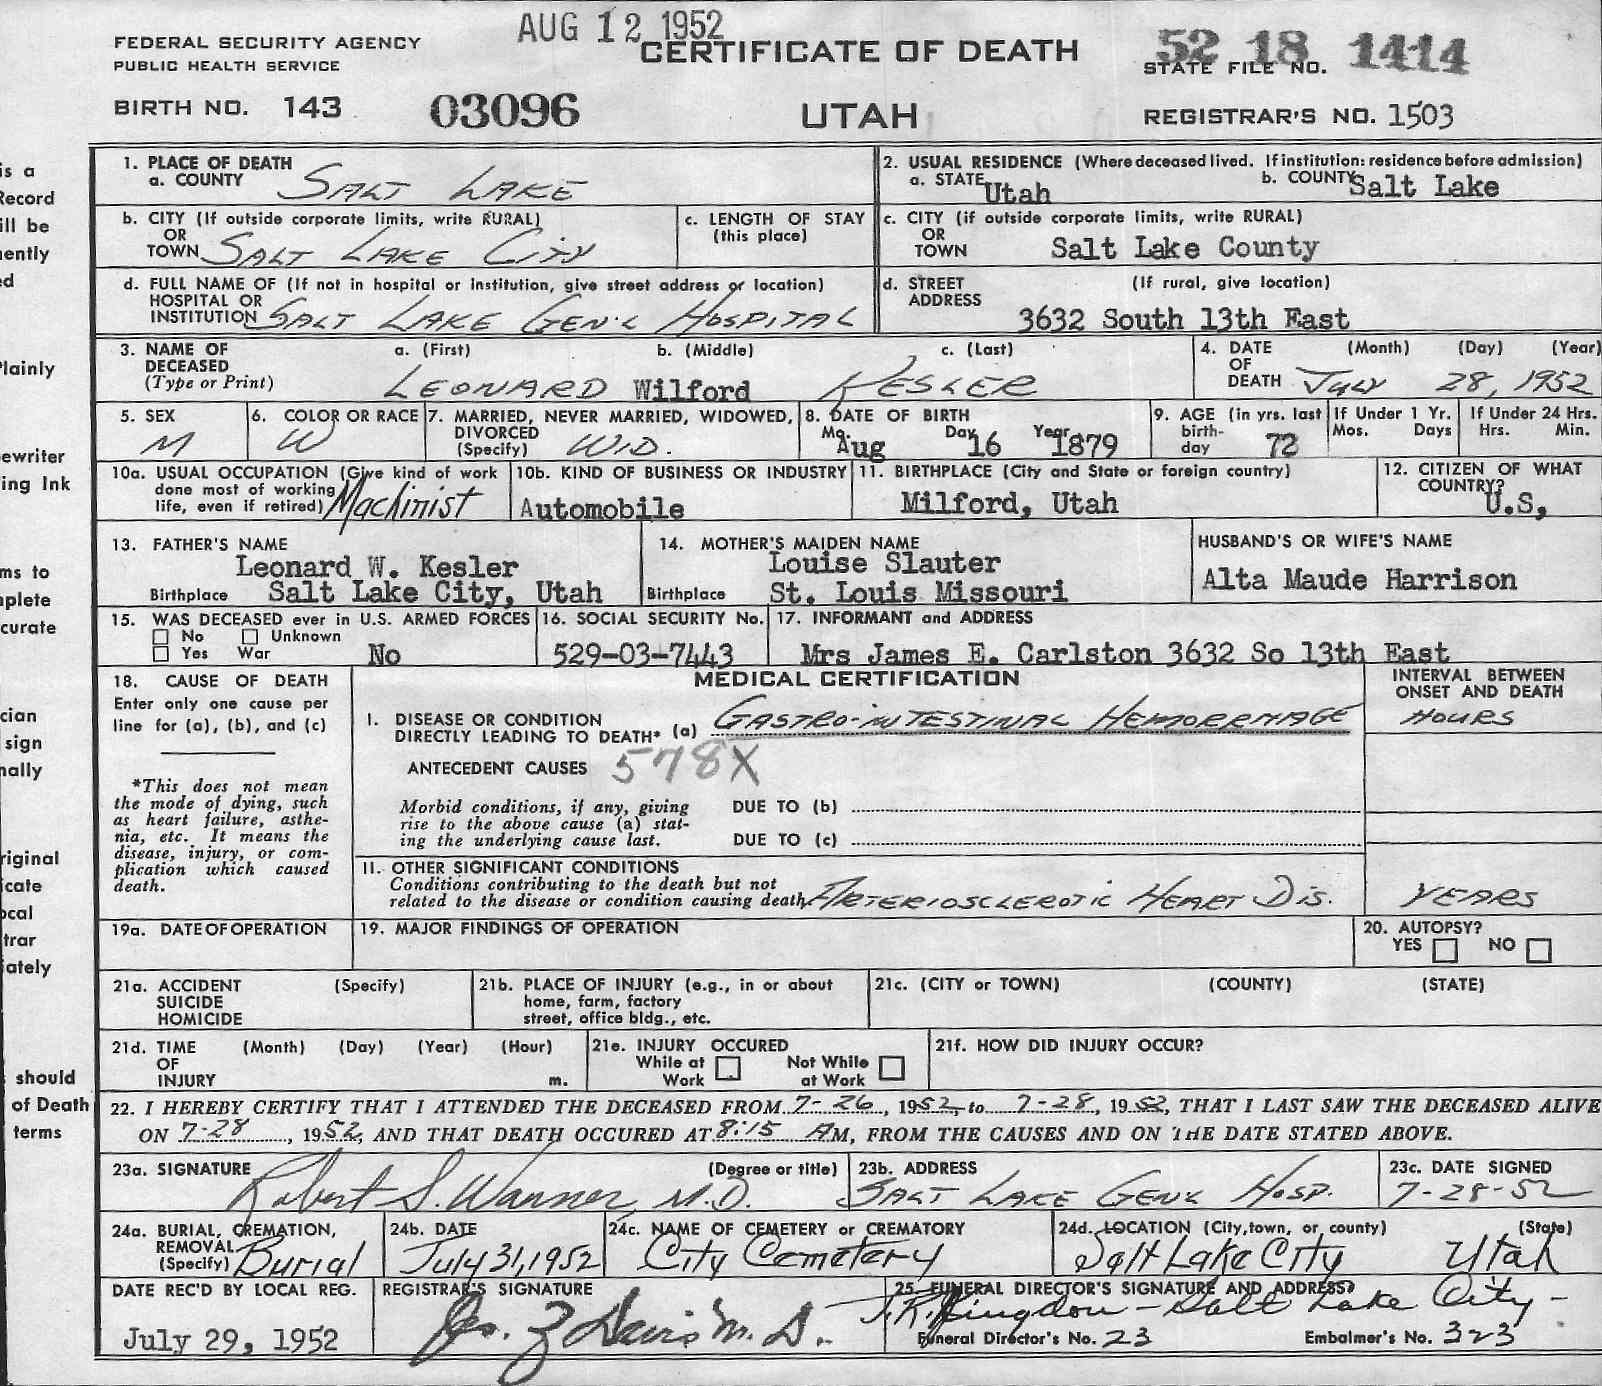 AUG 12 1952
FEDERAL SECURITY AGENCY
PUBLIC HEALTH SERVICE
CERTIFICATE OF DEATH
52 18 1414
STATE FILE NO.
BIRTH NO. 143 03096
UTAH
REGISTRAR'S NO. 1503
1. PLACE OF DEATH
a. COUNTY SALT LAKE
2. USUAL RESIDENCE (Where deceased lived. If institution: residence before admission)
a. STATE Utah b. COUNTY Salt Lake
b. CITY (If outside corporate limits, write RURAL)
OR
TOWN SALT LAKE CITY
c. LENGTH OF STAY
(this place)
c. CITY (if outside corporate limits, write RURAL)
OR
TOWN Salt Lake County
d. FULL NAME OF (If not in hospital or institution, give street address or location)
HOSPITAL OR
INSTITUTION SALT LAKE GEN'L HOSPITAL
d. STREET (If rural, give location)
ADDRESS
3632 South 13th East
3. NAME OF a. (First) b. (Middle) c. (Last)
DECEASED
(Type or Print) LEONARD Wilford KESLER
4. DATE (Month) (Day) (Year)
OF
DEATH JULY 28, 1952
5. SEX
M
6. COLOR OR RACE
W
7. MARRIED, NEVER MARRIED, WIDOWED,
DIVORCED
(Specify) WID.
8. DATE OF BIRTH
Mo. Day Year
Aug 16 1879
9. AGE (in yrs. last
birth-
day 72
If Under 1 Yr.
Mos. Days
If Under 24 Hrs.
Hrs. Min.
10a. USUAL OCCUPATION (Give kind of work
done most of working
life, even if retired) Machinist
10b. KIND OF BUSINESS OR INDUSTRY
Automobile
11. BIRTHPLACE (City and State or foreign country)
Milford, Utah
12. CITIZEN OF WHAT
COUNTRY?
U.S,
13. FATHER'S NAME
Leonard W. Kesler
Birthplace Salt Lake City, Utah
14. MOTHER'S MAIDEN NAME
Louise Slauter
Birthplace St. Louis Missouri
HUSBAND'S OR WIFE'S NAME
Alta Maude Harrison
15. WAS DECEASED ever in U.S. ARMED FORCES
No Unknown
Yes War No
16. SOCIAL SECURITY No.
529-03-7443
17. INFORMANT and ADDRESS
Mrs James E. Carlston 3632 So 13th East
18. CAUSE OF DEATH
Enter only one cause per
line for (a), (b), and (c)
*This does not mean
the mode of dying, such
as heart failure, asthe-
nia, etc. It means the
disease, injury, or com-
plication which caused
death.
MEDICAL CERTIFICATION
INTERVAL BETWEEN
ONSET AND DEATH
I. DISEASE OR CONDITION
DIRECTLY LEADING TO DEATH* (a) GASTRO-INTESTINAL HEMORRHAGE
HOURS
ANTECEDENT CAUSES 578X
Morbid conditions, if any, giving
rise to the above cause (a) stat-
ing the underlying cause last.
DUE TO (b)
DUE TO (c)
II. OTHER SIGNIFICANT CONDITIONS
Conditions contributing to the death but not
related to the disease or condition causing death. ARTERIOSCLEROTIC HEART DIS.
YEARS
19a. DATE OF OPERATION
19. MAJOR FINDINGS OF OPERATION
20. AUTOPSY?
YES NO
21a. ACCIDENT (Specify)
SUICIDE
HOMICIDE
21b. PLACE OF INJURY (e.g., in or about
home, farm, factory
street, office bldg., etc.
21c. (CITY or TOWN) (COUNTY) (STATE)
21d. TIME (Month) (Day) (Year) (Hour)
OF
INJURY m.
21e. INJURY OCCURED
While at Not While
Work at Work
21f. HOW DID INJURY OCCUR?
22. I HEREBY CERTIFY THAT I ATTENDED THE DECEASED FROM 7-26, 1952 to 7-28, 1952, THAT I LAST SAW THE DECEASED ALIVE
ON 7-28, 1952, AND THAT DEATH OCCURED AT 8:15 AM, FROM THE CAUSES AND ON THE DATE STATED ABOVE.
23a. SIGNATURE (Degree or title)
Robert S. Warner, M.D.
23b. ADDRESS
SALT LAKE GENL HOSP.
23c. DATE SIGNED
7-28-52
24a. BURIAL, CREMATION,
REMOVAL
(Specify) Burial
24b. DATE
July 31, 1952
24c. NAME OF CEMETERY or CREMATORY
City Cemetery
24d. LOCATION (City, town, or county) (State)
Salt Lake City Utah
DATE REC'D BY LOCAL REG.
July 29, 1952
REGISTRAR'S SIGNATURE
Davis M.D.
25. FUNERAL DIRECTOR'S SIGNATURE AND ADDRESS?
Salt Lake City-
Funeral Director's No. 23 Embalmer's No. 323
is a
Record
ill be
nently
ed
Plainly
ewriter
ing Ink
ms to
plete
curate
cian
sign
nally
riginal
icate
ocal
trar
iately
should
of Death
terms